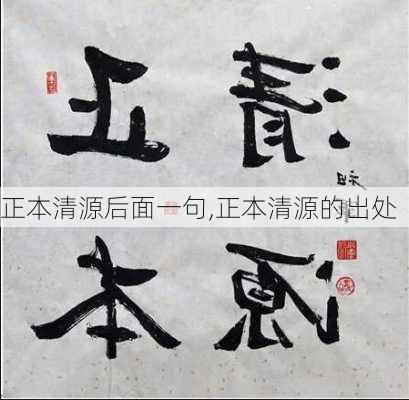 正本
清源
正本清源后面一句,正本清源的出处